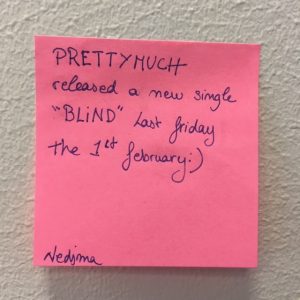 PRETTYMUCH
released a new single
"BLiND" Last friday
the 1st february:)
Nedjma